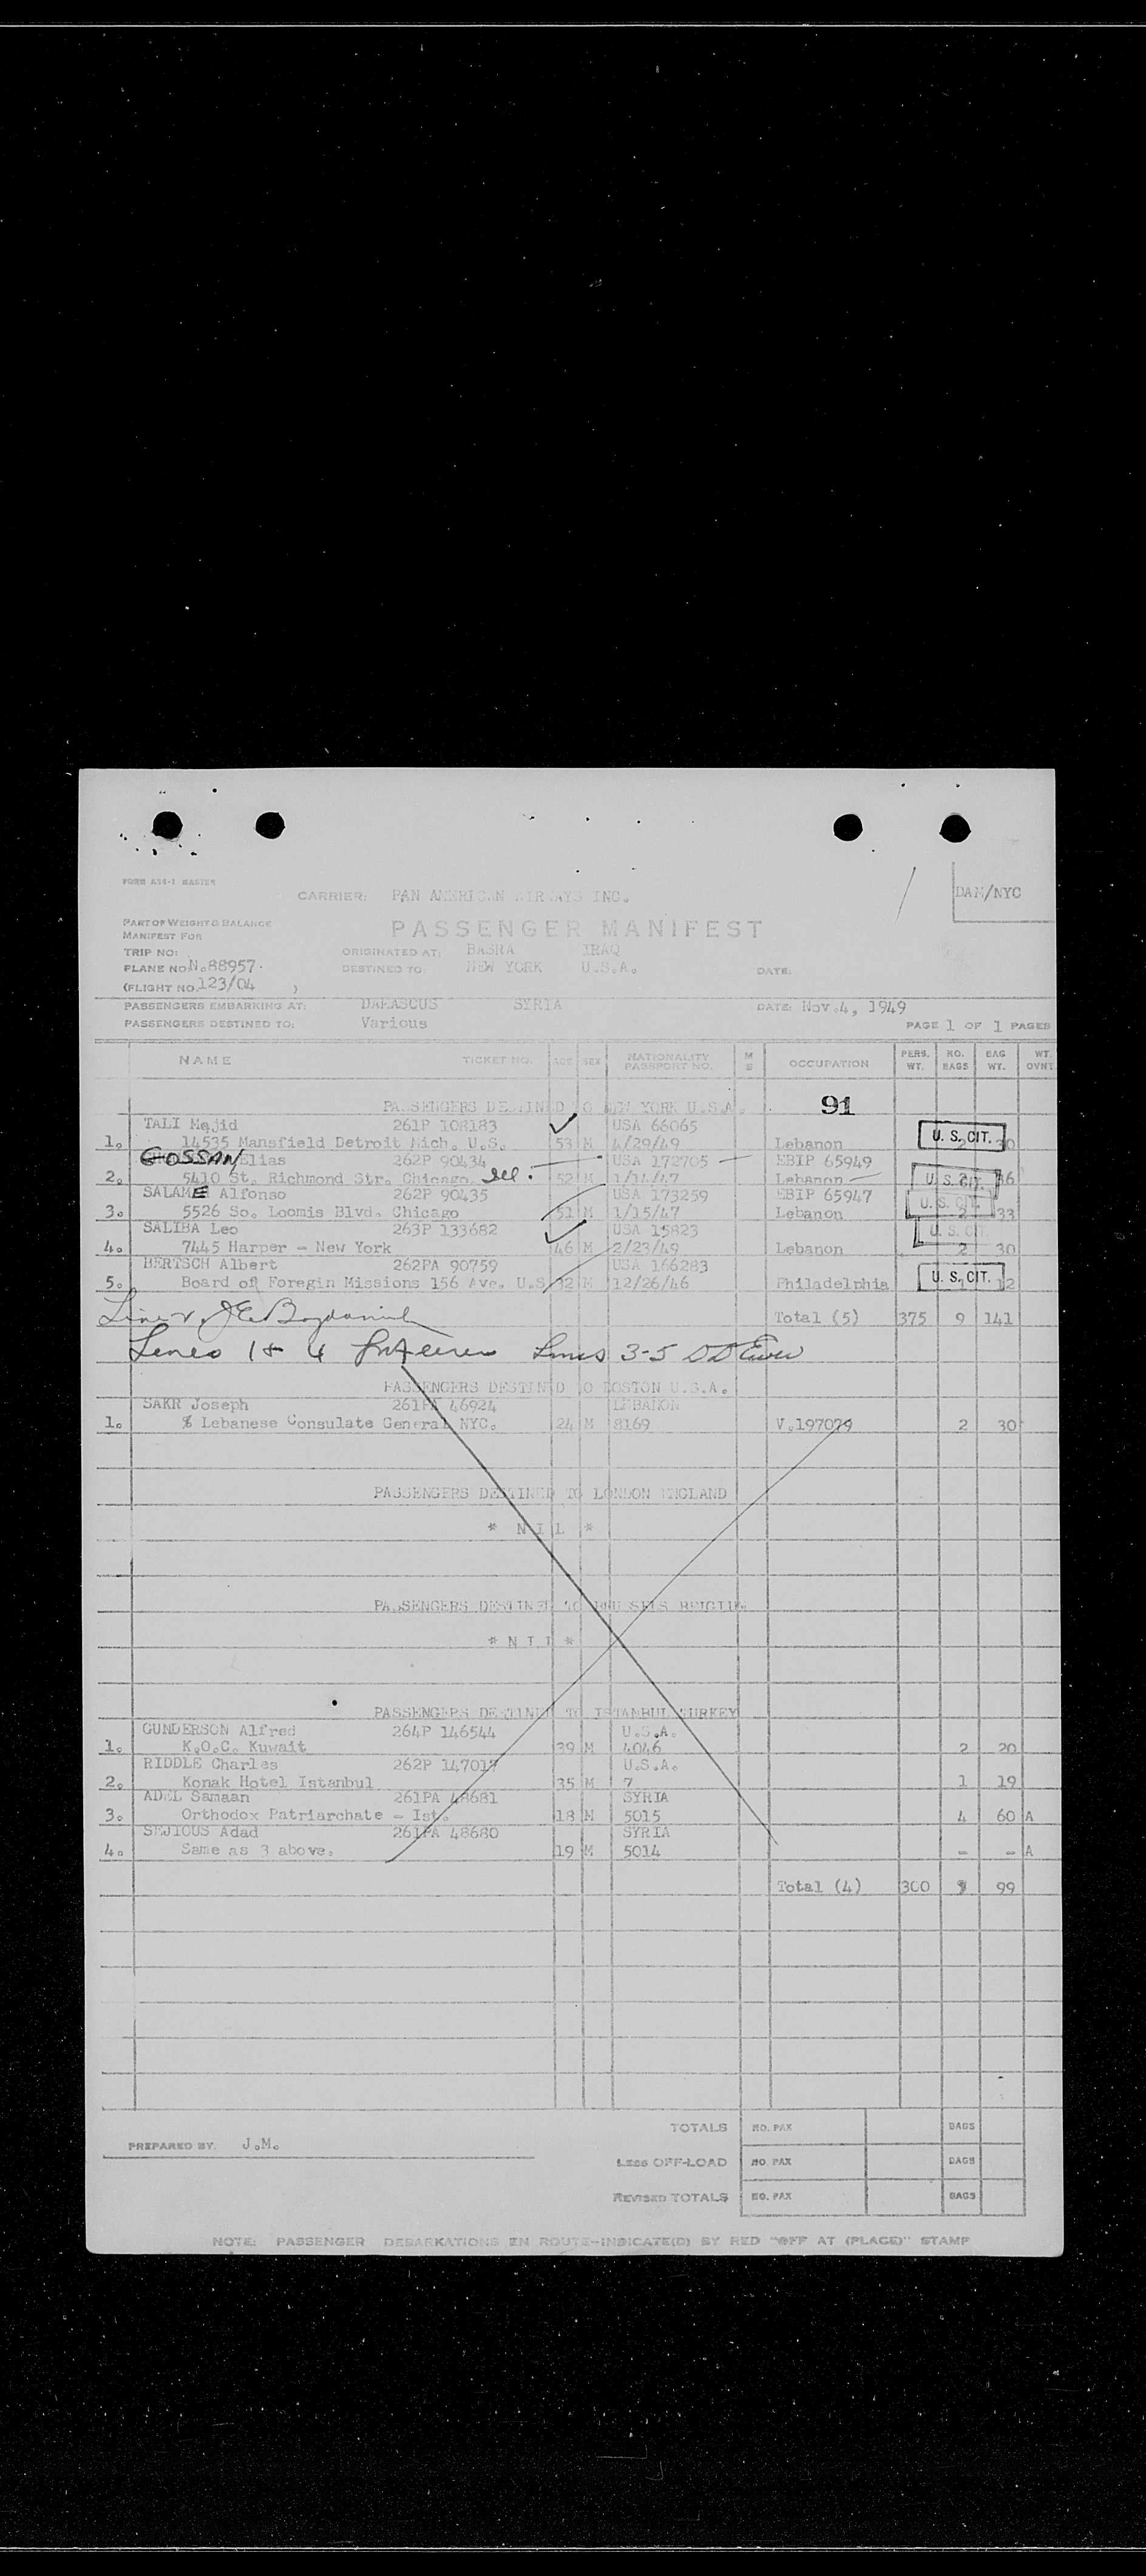 FORM A24-1 MASTER
CARRIER: PAN AMERICAN AIRWAYS INC.
DAM/NYC
PART OF WEIGHT & BALANCE
MANIFEST FOR
PASSENGER MANIFEST
TRIP NO: ORIGINATED AT: BASRA IRAQ
PLANE NO. N.88957. DESTINED TO: NEW YORK U.S.A. DATE:
(FLIGHT NO. 123/04 )
PASSENGERS EMBARKING AT: DAMASCUS SYRIA DATE: Nov.4, 1949
PASSENGERS DESTINED TO: Various PAGE 1 OF 1 PAGES
NAME TICKET NO. AGE SEX NATIONALITY PASSPORT NO. M S OCCUPATION PERS. WT. NO. BAGS BAG WT. WT. OVNT.
PASSENGERS DESTINED TO NEW YORK U.S.A. 91
TALI Majid 261P 108183 USA 66065
1. 14535 Mansfield Detroit Mich. U.S. 53 M 4/29/49 Lebanon U. S. CIT. 30
GOSSAN Elias 262P 90434 USA 172705 EBIP 65949
2. 5410 St. Richmond Str. Chicago 52 M 1/14/47 Lebanon U. S. CIT. 36
SALAME Alfonso 262P 90435 USA 173259 EBIP 65947
3. 5526 So. Loomis Blvd. Chicago 51 M 1/15/47 Lebanon U. S. CIT. 2 33
SALIBA Leo 263P 133682 USA 15823 U. S. CIT.
4. 7445 Harper - New York 46 M 2/23/49 Lebanon 2 30
BERTSCH Albert 262PA 90759 USA 166283
5. Board of Foregin Missions 156 Ave. U.S. M 12/26/46 Philadelphia U. S. CIT. 12
Total (5) 375 9 141
Lines 1 & 4 Lines 3-5
PASSENGERS DESTINED TO BOSTON U.S.A.
SAKR Joseph 261PA 46924 LEBANON
1. % Lebanese Consulate General NYC. 24 M 8169 V.197079 2 30
PASSENGERS DESTINED TO LONDON ENGLAND
* N I L *
PASSENGERS DESTINED TO BRUSSELS BELGIUM
* N I L *
PASSENGERS DESTINED TO ISTANBUL TURKEY
GUNDERSON Alfred 264P 146544 U.S.A.
1. K.O.C. Kuwait 39 M 4046 2 20
RIDDLE Charles 262P 147017 U.S.A.
2. Konak Hotel Istanbul 35 M 7 1 19
ADEL Samaan 261PA 48681 SYRIA
3. Orthodox Patriarchate - Ist. 18 M 5015 4 60 A
SEJIOUS Adad 261PA 48680 SYRIA
4. Same as 3 above. 19 M 5014 - - A
Total (4) 300 99
TOTALS NO. PAX BAGS
PREPARED BY. J.M.
LESS OFF-LOAD NO. PAX BAGS
REVISED TOTALS NO. PAX BAGS
NOTE: PASSENGER DEBARKATIONS EN ROUTE-INDICATE(D) BY RED "OFF AT (PLACE)" STAMP